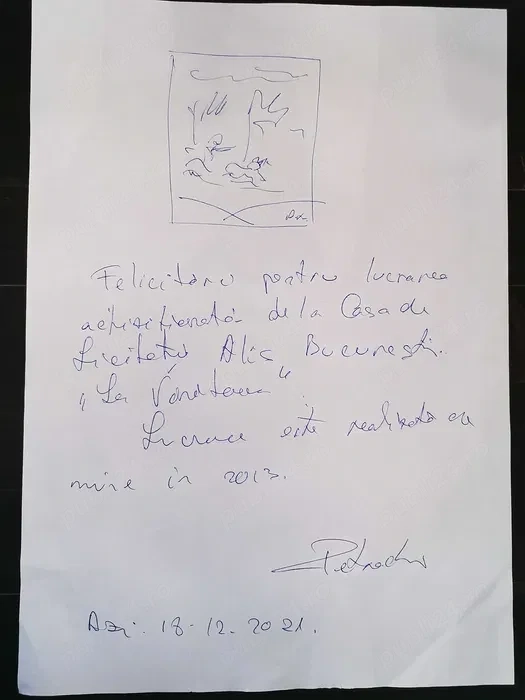 Felicitări pentru lucrarea
achiziționată de la Casa de
Licitații Alis București.
"La Vânătoare"
Lucrarea este realizată de
mine în 2013.
Azi. 18-12.2021.